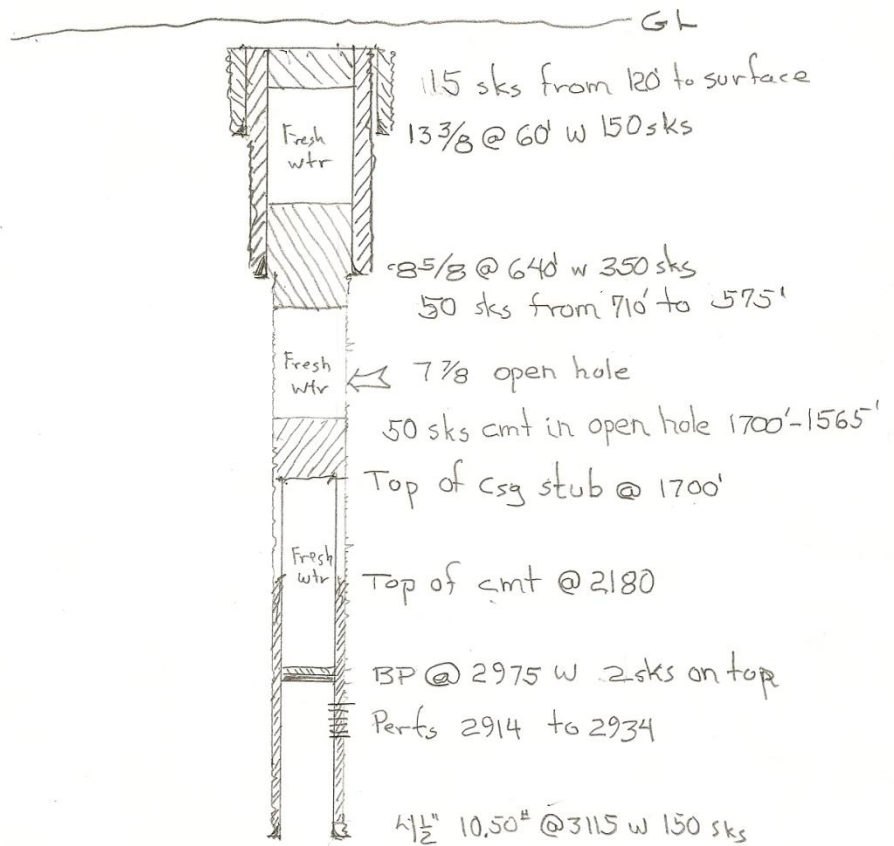 GL
115 sks from 120' to surface
Fresh
wtr
13 3/8 @ 60' w 150 sks
8 5/8 @ 640' w 350 sks
50 sks from 710' to 575'
Fresh
wtr
7 7/8 open hole
50 sks cmt in open hole 1700'-1565'
Top of csg stub @ 1700'
Fresh
wtr
Top of cmt @ 2180
BP @ 2975 w 2 sks on top
Perfs 2914 to 2934
4 1/2" 10.50# @ 3115 w 150 sks